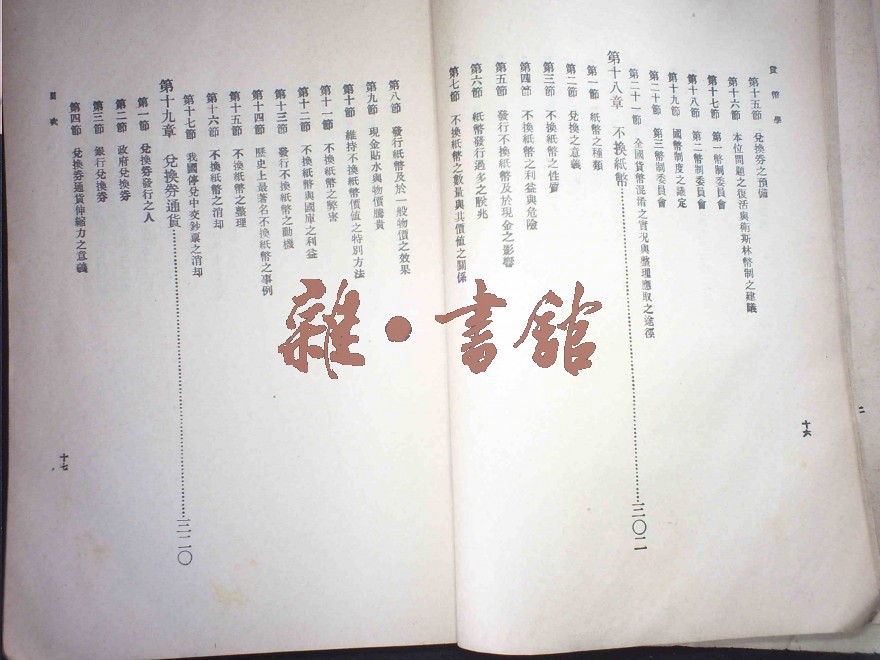 貨幣學
第十五節 兌換劵之預備
第十六節 本位問題之復活與衛斯林幣制之建議
第十七節 第一幣制委員會
第十八節 第二幣制委員會
第十九節 國幣制度之議定
第二十節 第三幣制委員會
第二十一節 全國貨幣混淆之實況與整理應取之途徑
第十八章 不換紙幣 三〇二
第一節 紙幣之種類
第二節 兌換之意義
第三節 不換紙幣之性質
第四節 不換紙幣之利益與危險
第五節 發行不換紙幣及於現金之影響
第六節 紙幣發行過多之朕兆
第七節 不換紙幣之數量與其價值之關係
十六
第八節 發行紙幣及於一般物價之效果
第九節 現金貼水與物價騰貴
第十節 維持不換紙幣價值之特別方法
第十一節 不換紙幣之弊害
第十二節 不換紙幣與國庫之利益
第十三節 發行不換紙幣之動機
第十四節 歷史上最著名不換紙幣之事例
第十五節 不換紙幣之整理
第十六節 不換紙幣之消却
第十七節 我國停兌中交鈔票之消却
第十九章 兌換劵通貨 三二〇
第一節 兌換劵發行之人
第二節 政府兌換劵
第三節 銀行兌換劵
第四節 兌換劵通貨伸縮力之意義
目次
十七
二
雜·書館